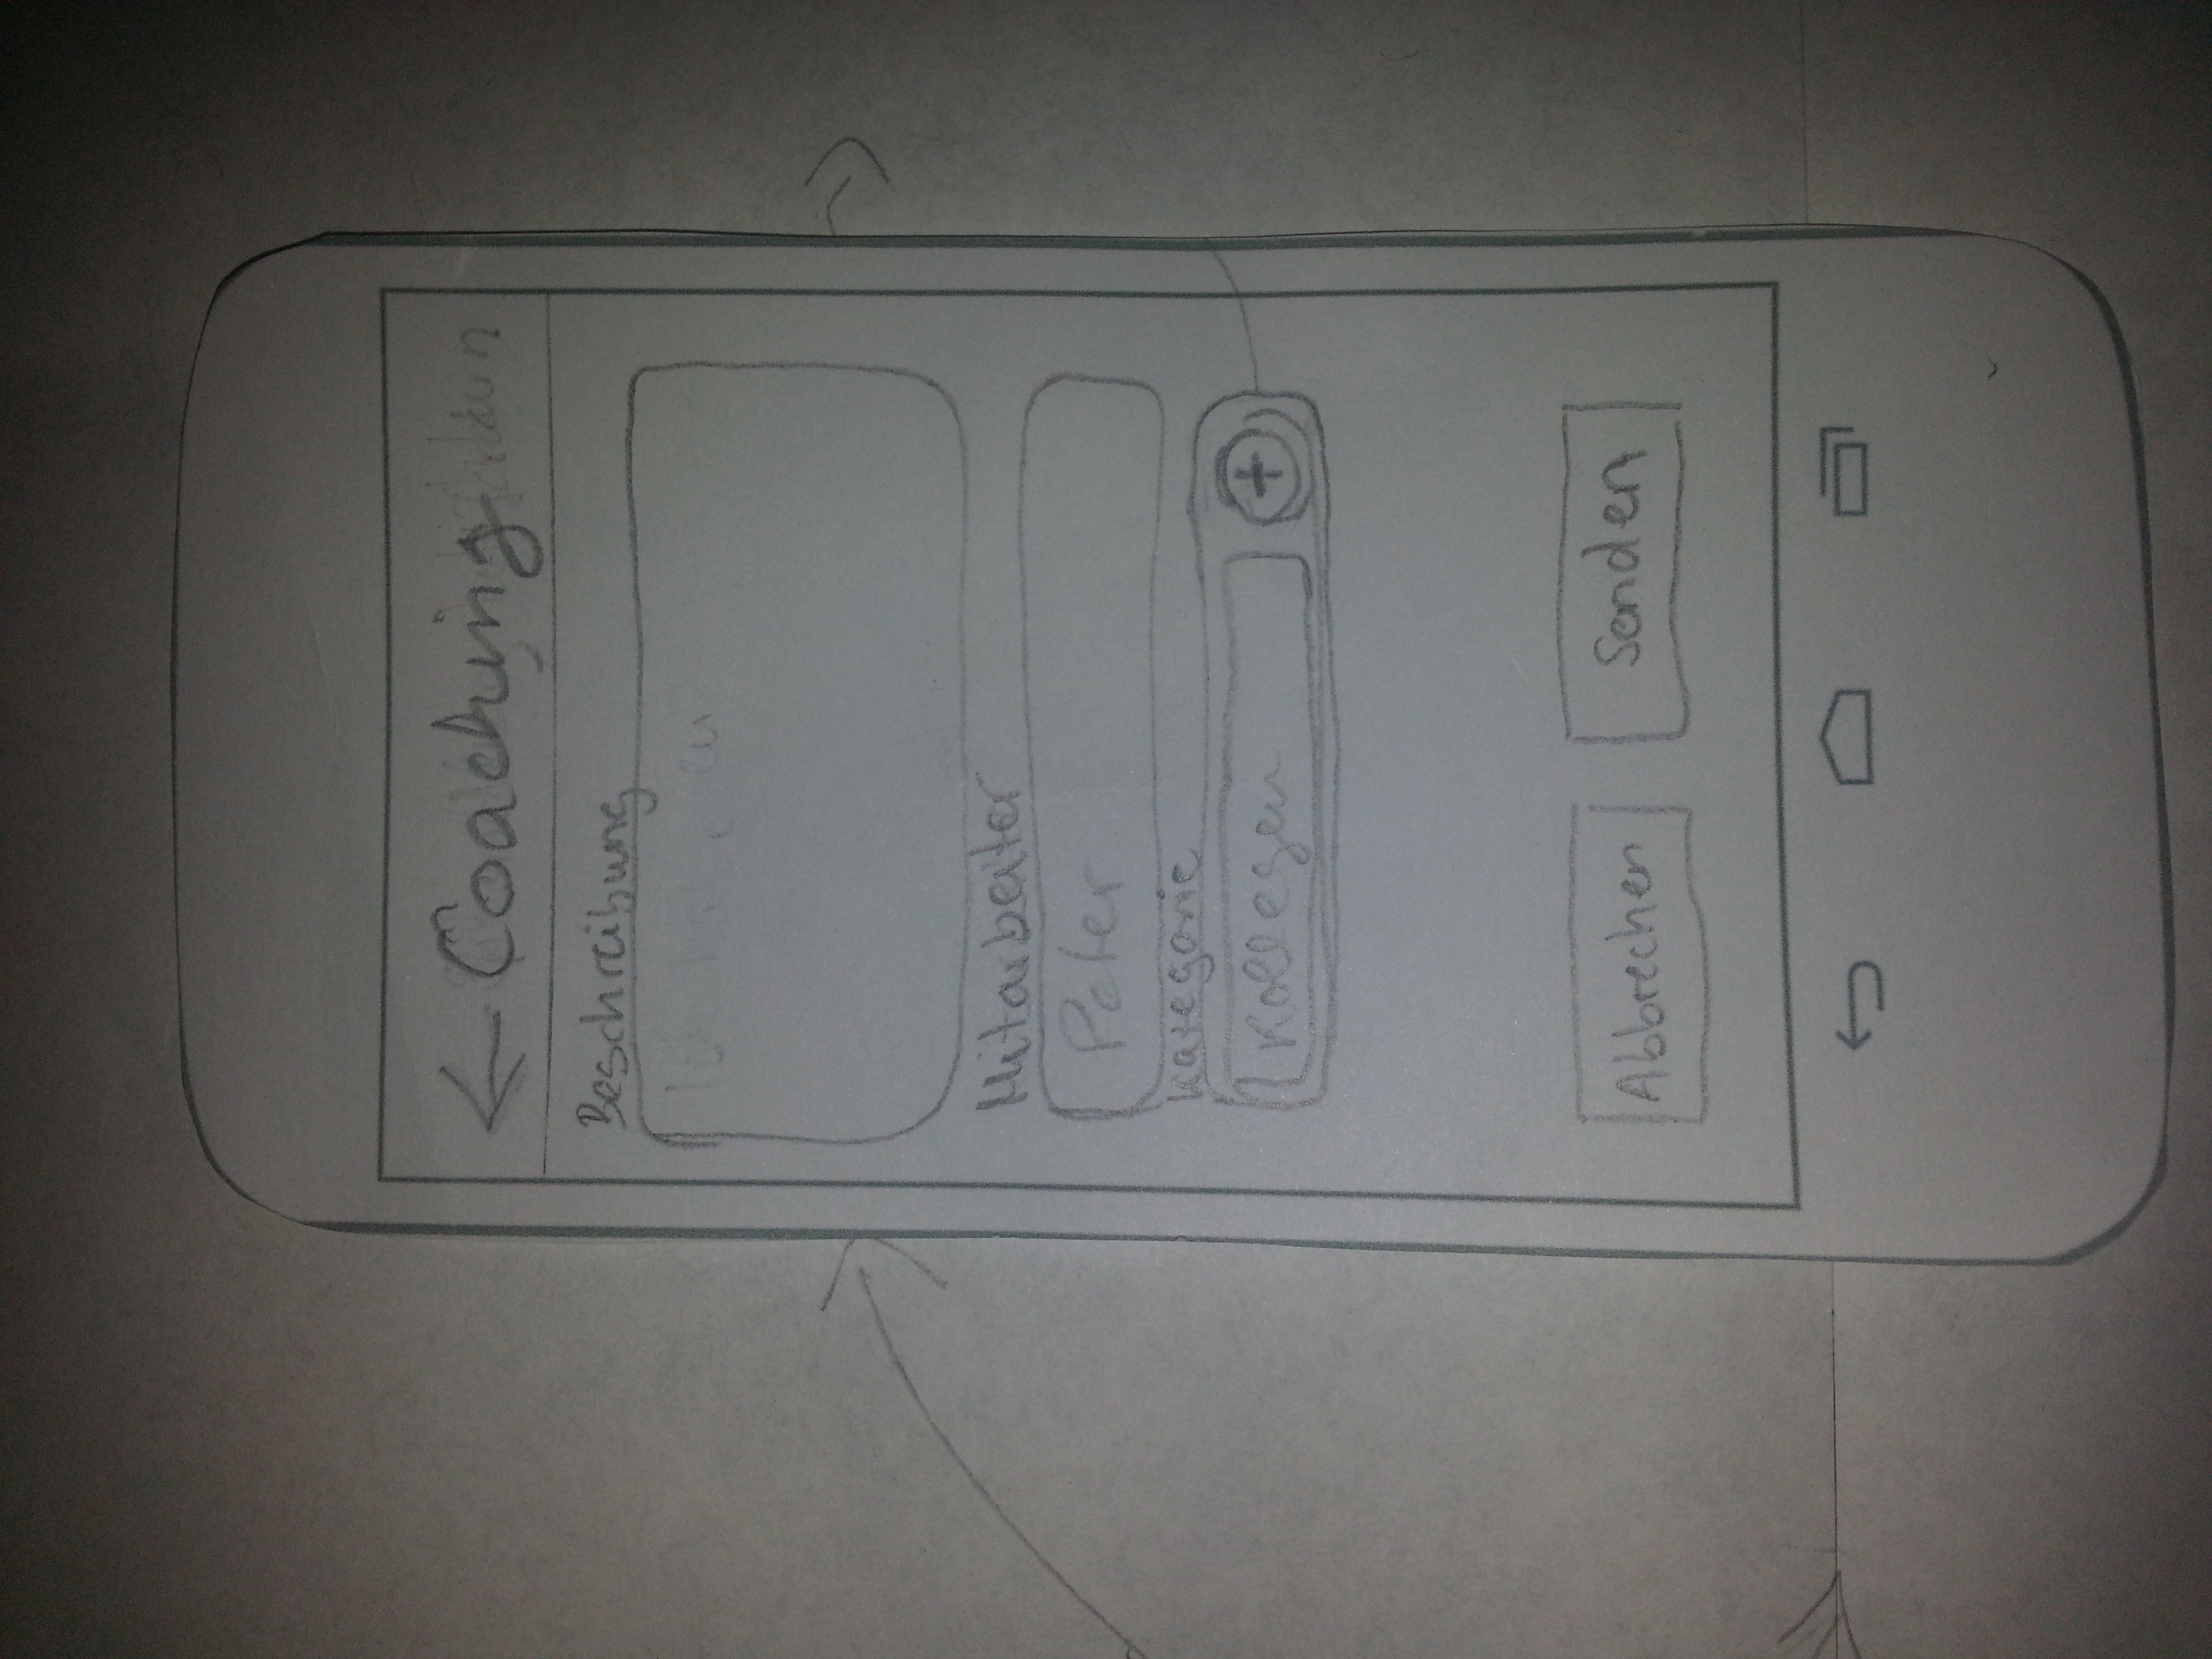 ← Coachung
Beschreibung
Mitarbeiter
Peter
Kategorie
Kollegen
+
Abbrechen Senden